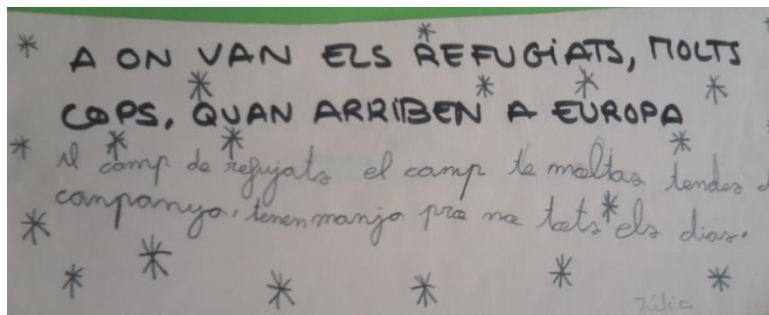 A ON VAN ELS REFUGIATS, MOLTS
COPS, QUAN ARRIBEN A EUROPA
Al camp de refujats el camp te moltas tendes d
canpanya, tenen manja pro no tots els dias.
Júlia